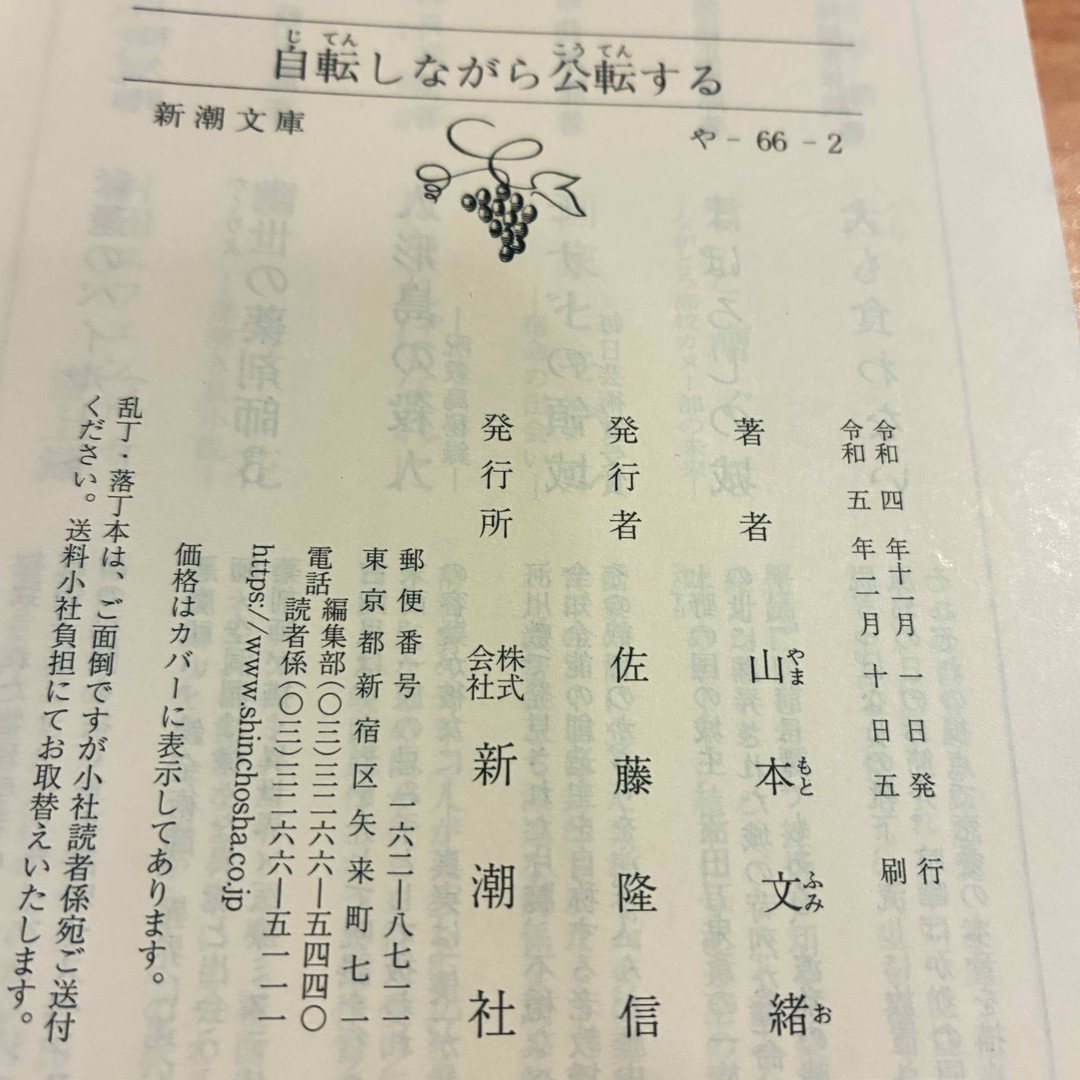 自転しながら公転する
新潮文庫
や-66-2
令和四年十一月一日発行
令和五年二月十日五刷
著者 山本文緒
発行者 佐藤隆信
発行所 株式会社 新潮社
郵便番号 一六二―八七一一
東京都新宿区矢来町七一
電話 編集部(〇三)三二六六―五四四〇
読者係(〇三)三二六六―五一一一
https://www.shinchosha.co.jp
価格はカバーに表示してあります。
乱丁・落丁本は、ご面倒ですが小社読者係宛ご送付
ください。送料小社負担にてお取替えいたします。